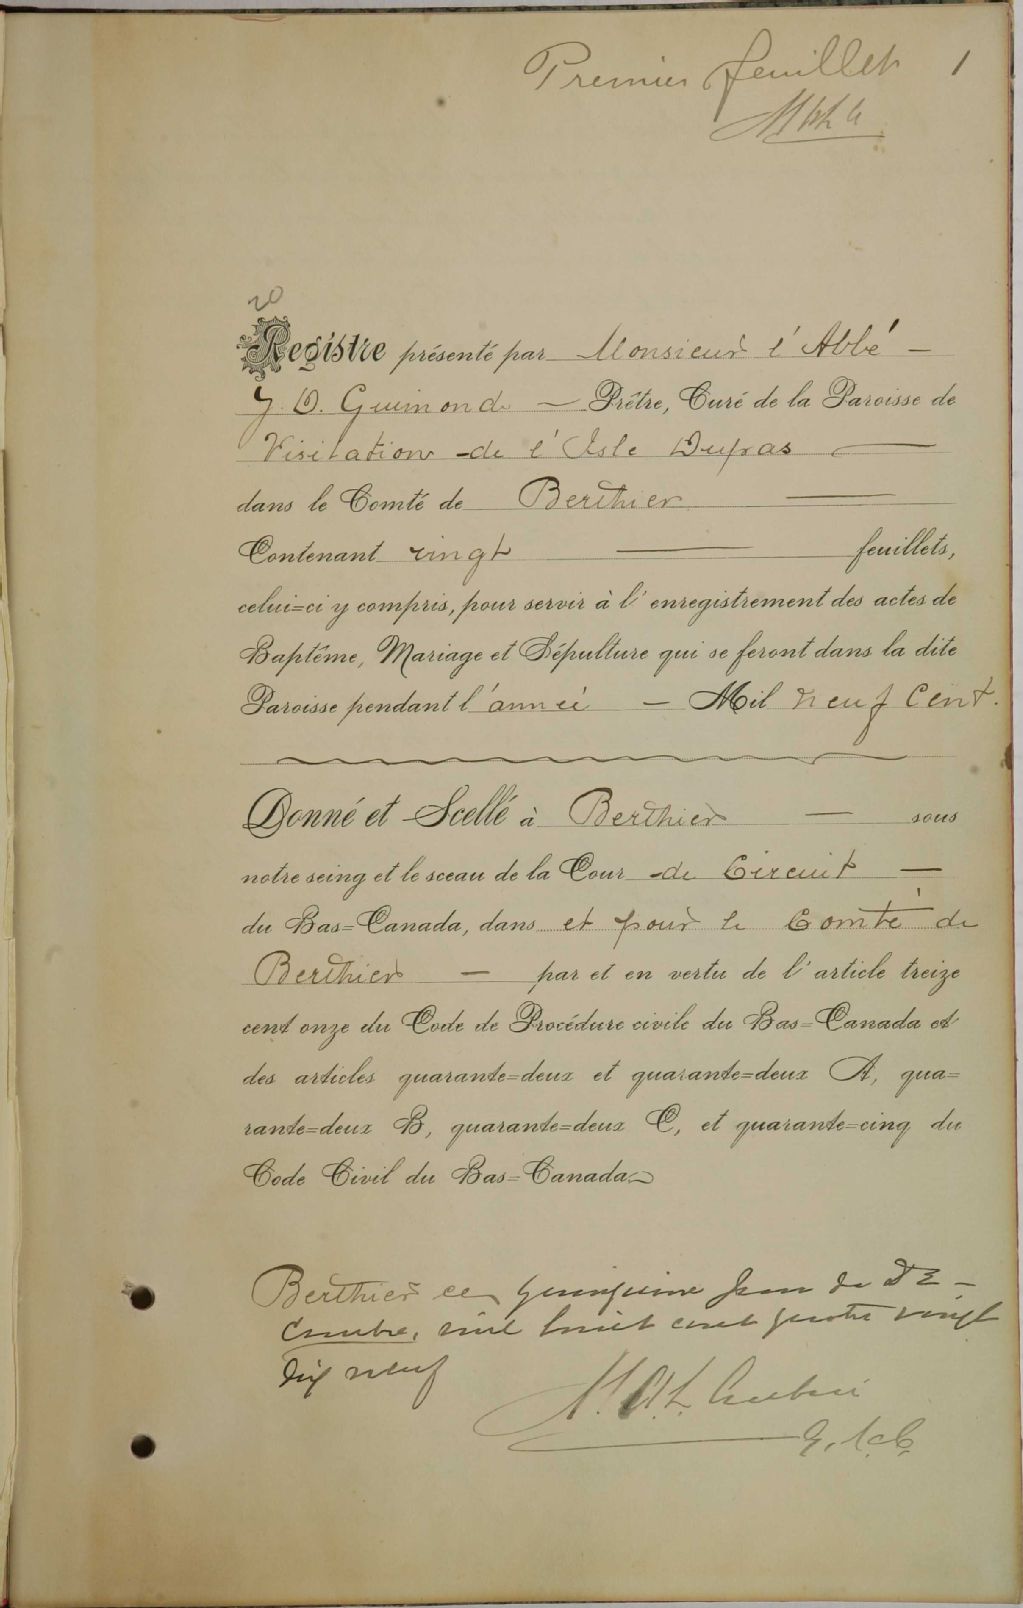 Premier feuillet 1
20
Registre présenté par Monsieur l'Abbé —
J. D. Guimond — Prêtre, Curé de la Paroisse de
Visitation de l'Isle Dupas —
dans le Comté de Berthier —
Contenant vingt — feuillets,
celui=ci y compris, pour servir à l'enregistrement des actes de
Baptême, Mariage et Sépulture qui se feront dans la dite
Paroisse pendant l'année — Mil neuf cent.
Donné et Scellé à Berthier — sous
notre seing et le sceau de la Cour de Circuit —
du Bas=Canada, dans et pour le Comté de
Berthier — par et en vertu de l'article treize
cent onze du Code de Procédure civile du Bas=Canada et
des articles quarante=deux et quarante=deux A, qua=
rante=deux B, quarante=deux C, et quarante=cinq du
Code Civil du Bas=Canada
Berthier ce quinzième jour de Dé-
cembre, mil huit cent quatre vingt
dix neuf